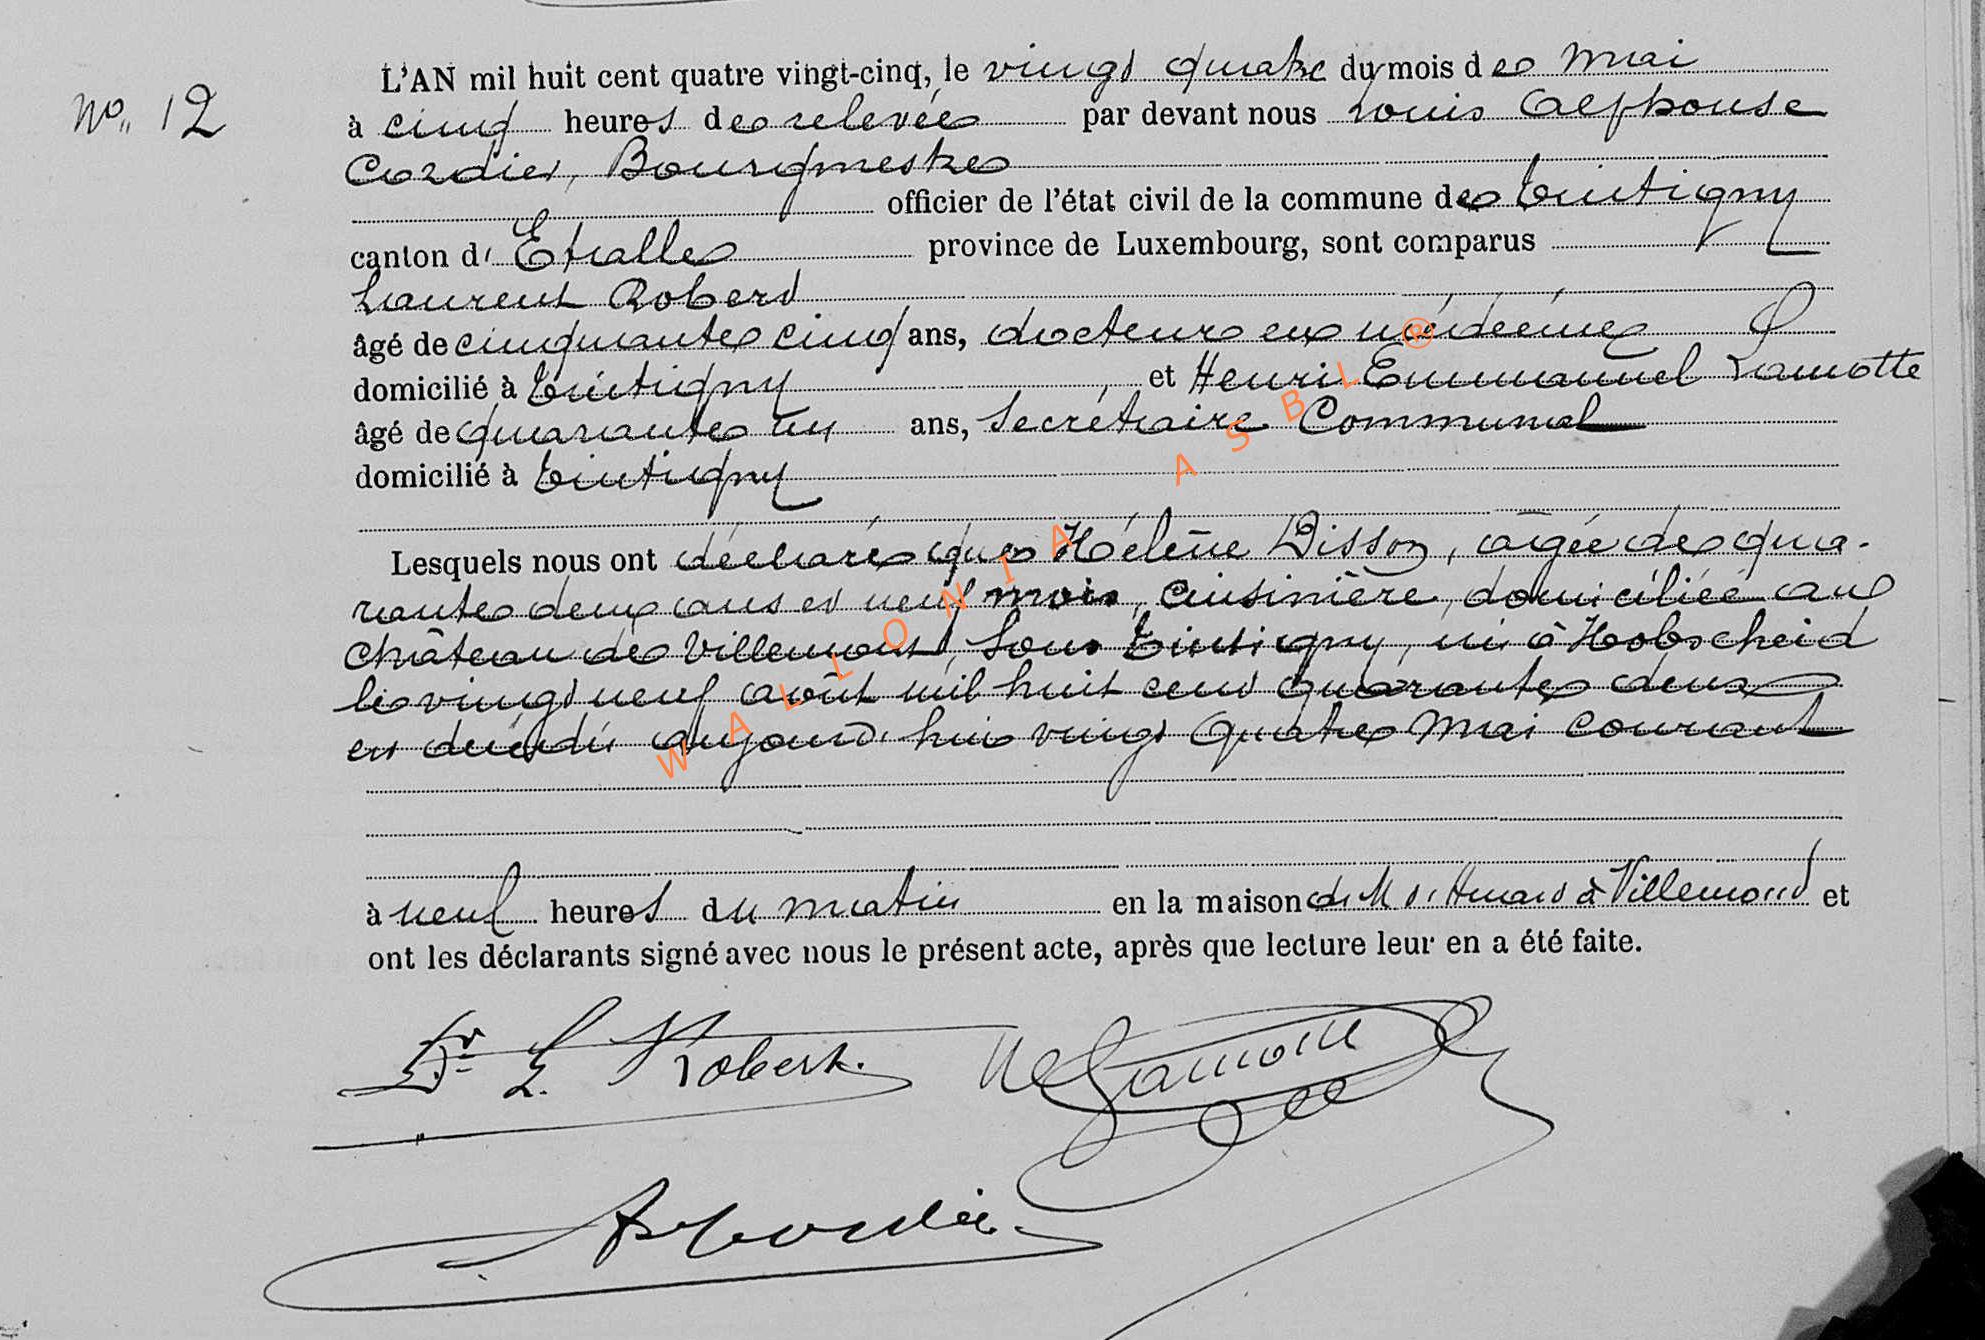 No 12
L'AN mil huit cent quatre vingt-cinq, le vingt quatre du mois de mai
à cinq heures de relevée par devant nous Louis Alphonse
Cordier, Bourgmestre
officier de l'état civil de la commune de Tintigny
canton d' Etalle province de Luxembourg, sont comparus
Laurent Robert
âgé de cinquante cinq ans, docteur en médecine
domicilié à Tintigny et Henri Emmanuel Lamotte
âgé de quarante un ans, Secrétaire Communal
domicilié à Tintigny
Lesquels nous ont déclaré que Hélène Disson, agée de qua-
rante deux ans et neuf mois, Cuisinière, domiciliée au
Château de Villemont, sous Tintigny, né à Hobscheid
le vingt neuf août mil huit cent quarante deux
est décédé aujourd'hui vingt quatre mai courant
à neuf heures du matin en la maison de Mr à Villemont et
ont les déclarants signé avec nous le présent acte, après que lecture leur en a été faite.
Dr L. Robert. Lamotte
A Cordier
WALLONIA ASBL ®